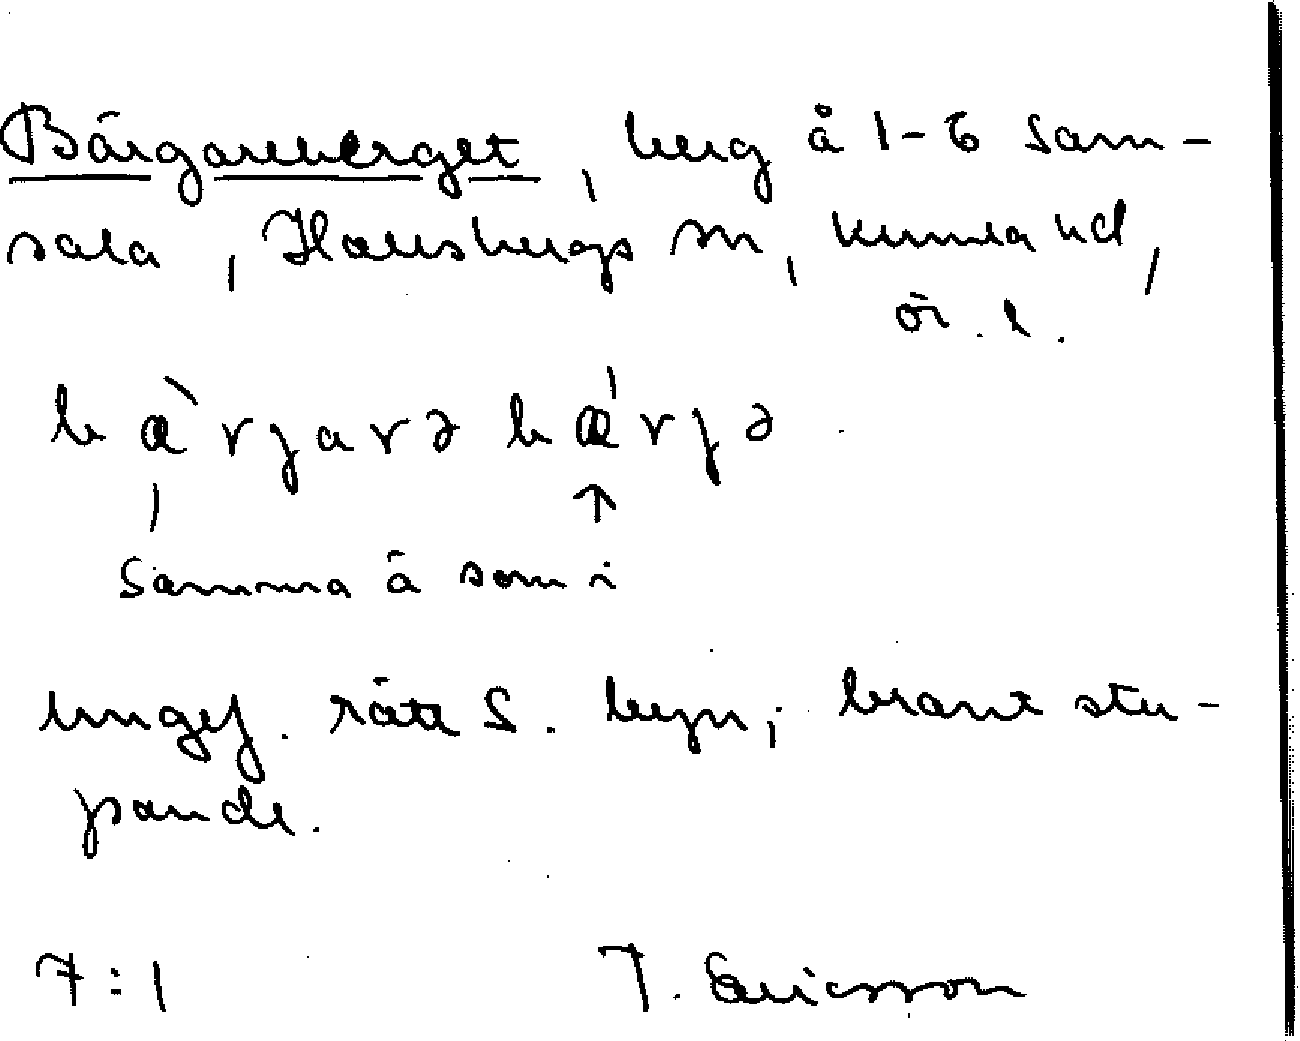 Bärgareberget, berg å 1-6 Sam-
sala, Hallsbergs sn, Kumla hd,
Ör. l.
bæ̀rjarə bǽrjə
Samma ä som i
ungef. rätt S. byn; brant stu-
pande.
7:1 T. Ericsson